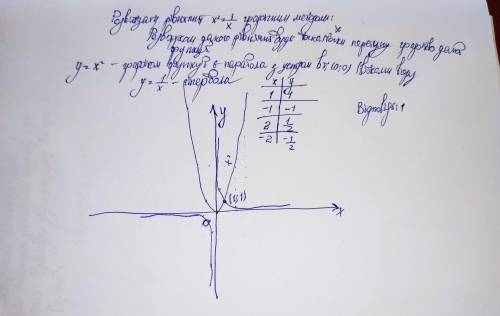 Розвязати рівняння x² = 1/x графічним методом:
Розвязком даного рівняння буде точка перетину графіків двох
функцій
y = x² - графіком функції є парабола з Узгом в т.(0;0) Вітками вгору
y = 1/x - гіпербола
x | y
1 | 1
-1 | -1
2 | 1/2
-2 | -1/2
Відповідь: 1
y
x²
(1;1)
x